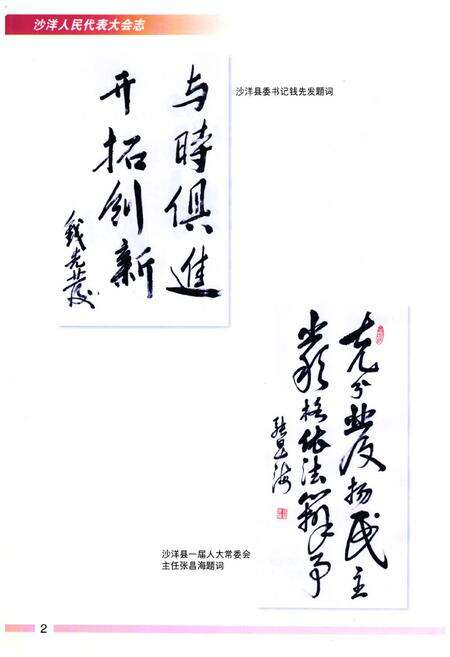 沙洋人民代表大会志
与時俱進
开拓创新
钱先發
沙洋县委书记钱先发题词
充分發扬民主
严格依法辦事
张昌海
沙洋县一届人大常委会
主任张昌海题词
2